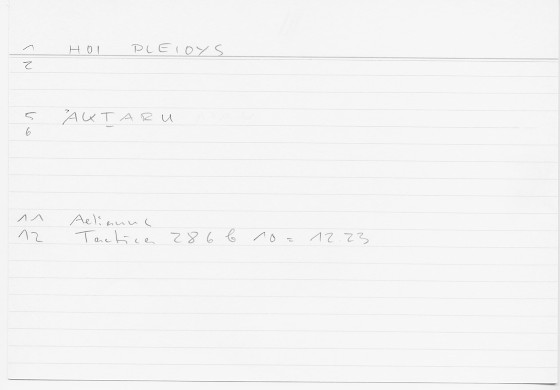 1 HOI PLEIOYS
2
5 ÄUTARU
6
11 Aelianus
12 Tactica 286 b 10 = 12.23